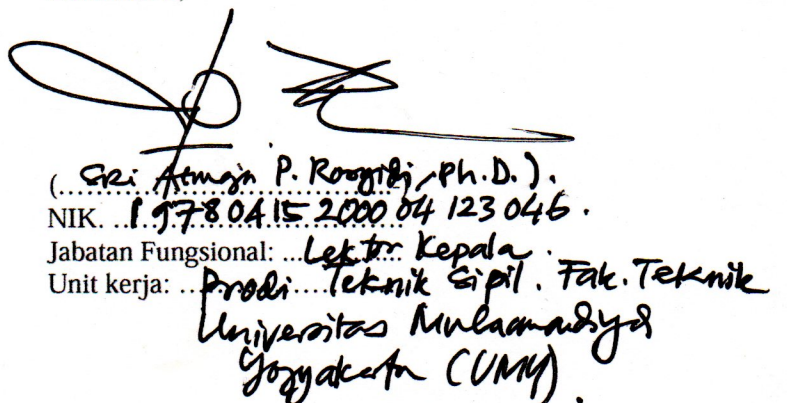 (Sri Atmaja P. Rosyidi, Ph.D.).
NIK. 19780415200004123046.
Jabatan Fungsional: Lektor Kepala.
Unit kerja: Prodi Teknik Sipil. Fak. Teknik
Universitas Muhammadiyah
Yogyakarta (UMY).